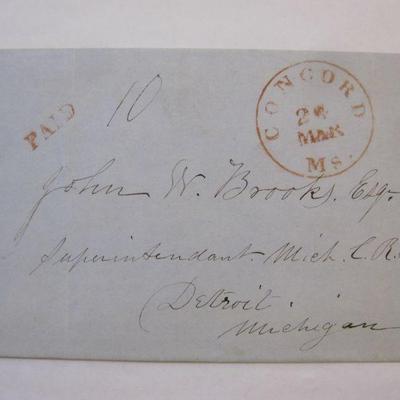 PAID
10
CONCORD
24
MAR
Ms.
John W. Brooks. Esq.
Superintendant. Mich. C. R.
Detroit.
Michigan